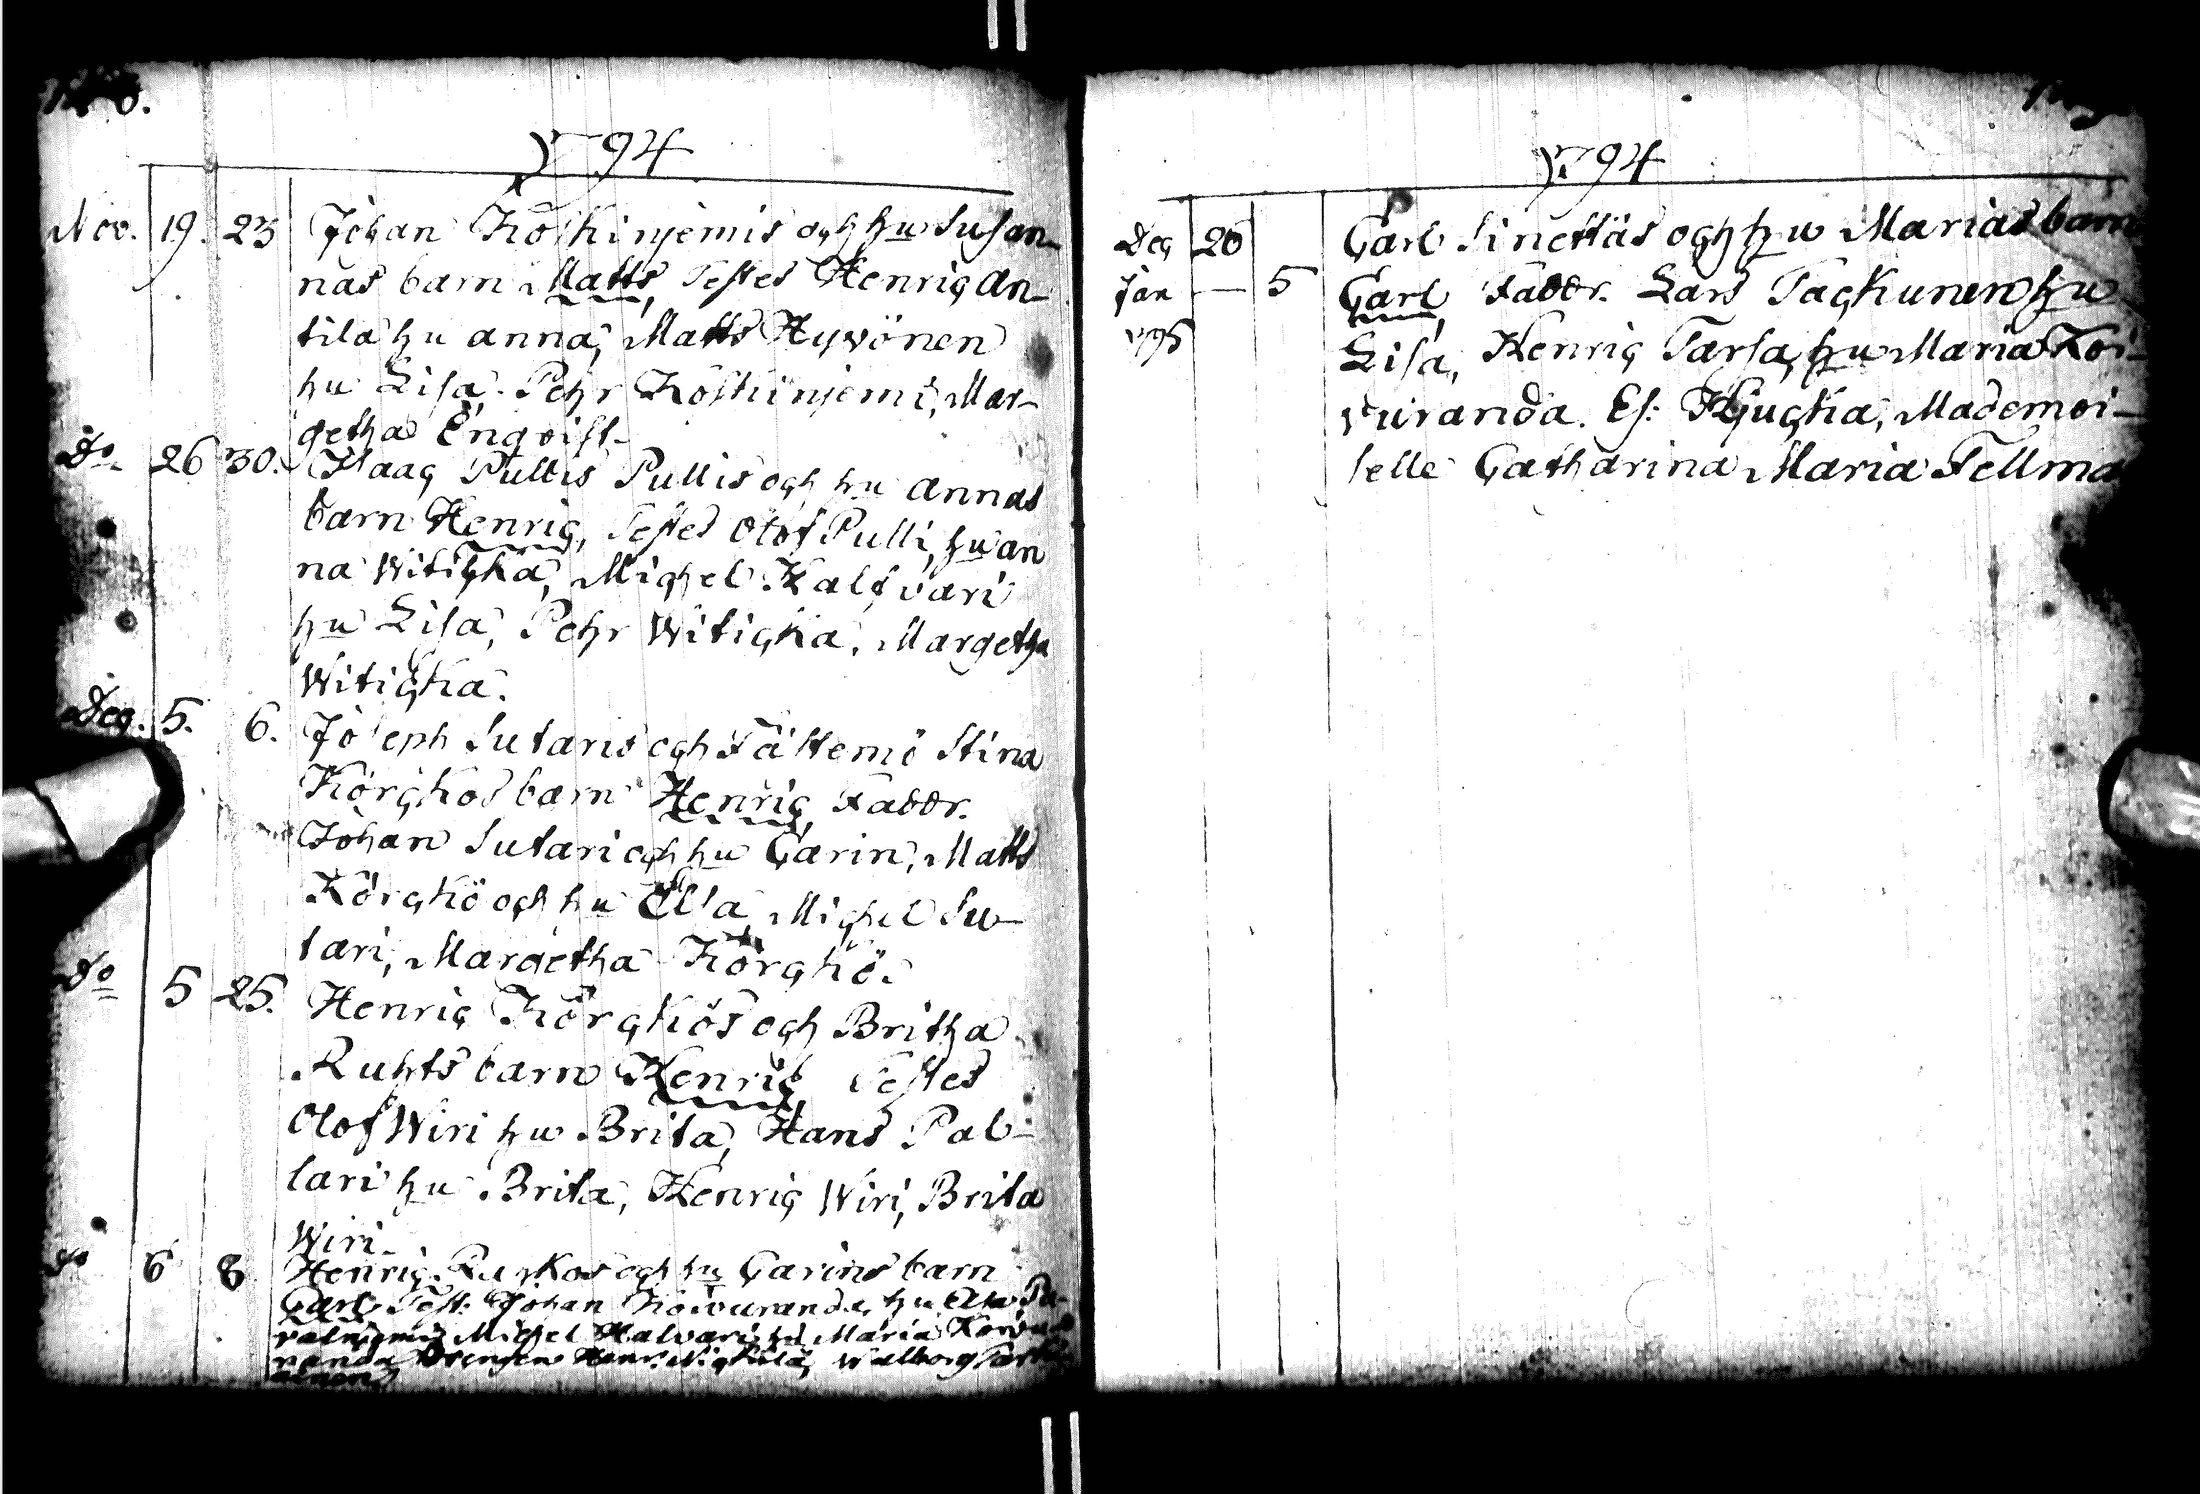 1794
Nov. 19. 23 Johan Koskinjemis och hu Susan-
nas barn Matts, Testes Henric An-
tila hu Anna, Matts Hyvönen
hu Lisa. Pehr Koskinjemi, Mar-
getha Enqvist.
do. 26 30. Isaac Pullis och hu Annas
barn Henric, Testes Olof Pulli, hu An
na Witicka, Michel Kalfvari
hu Lisa, Pehr Witicka, Margetha
Witicka.
Dec. 5. 6. Joseph Sutaris och Fästemö Stina
Körckös barn Henric Faddr.
Johan Sutari och hu Carin, Matts
Körckö och hu Elsa, Michel Su-
tari, Margetha Körckö.
do 5 25. Henric Körckös och Britha
Ruhts barn Henric Testes
Olof Wiri hu Brita, Hans Pal-
lari hu Brita, Henric Wiri, Brita
Wiri.
do 6 8 Henric och hu Carins barn
Carl Test: Johan Koivuranda, hu
Michel Halvari hu Maria Koivu
randa Drengen Henr. Walborg
1794
Dec 26 Carl Sinettäs och hu Marias barn
Jan — 5 Carl Faddr. Lars Tackunen hu
1795 Lisa, Henric Tarsa, hu Maria Koi-
vuranda. Es: Hjucka, Mademoi-
selle Catharina Maria Fellma